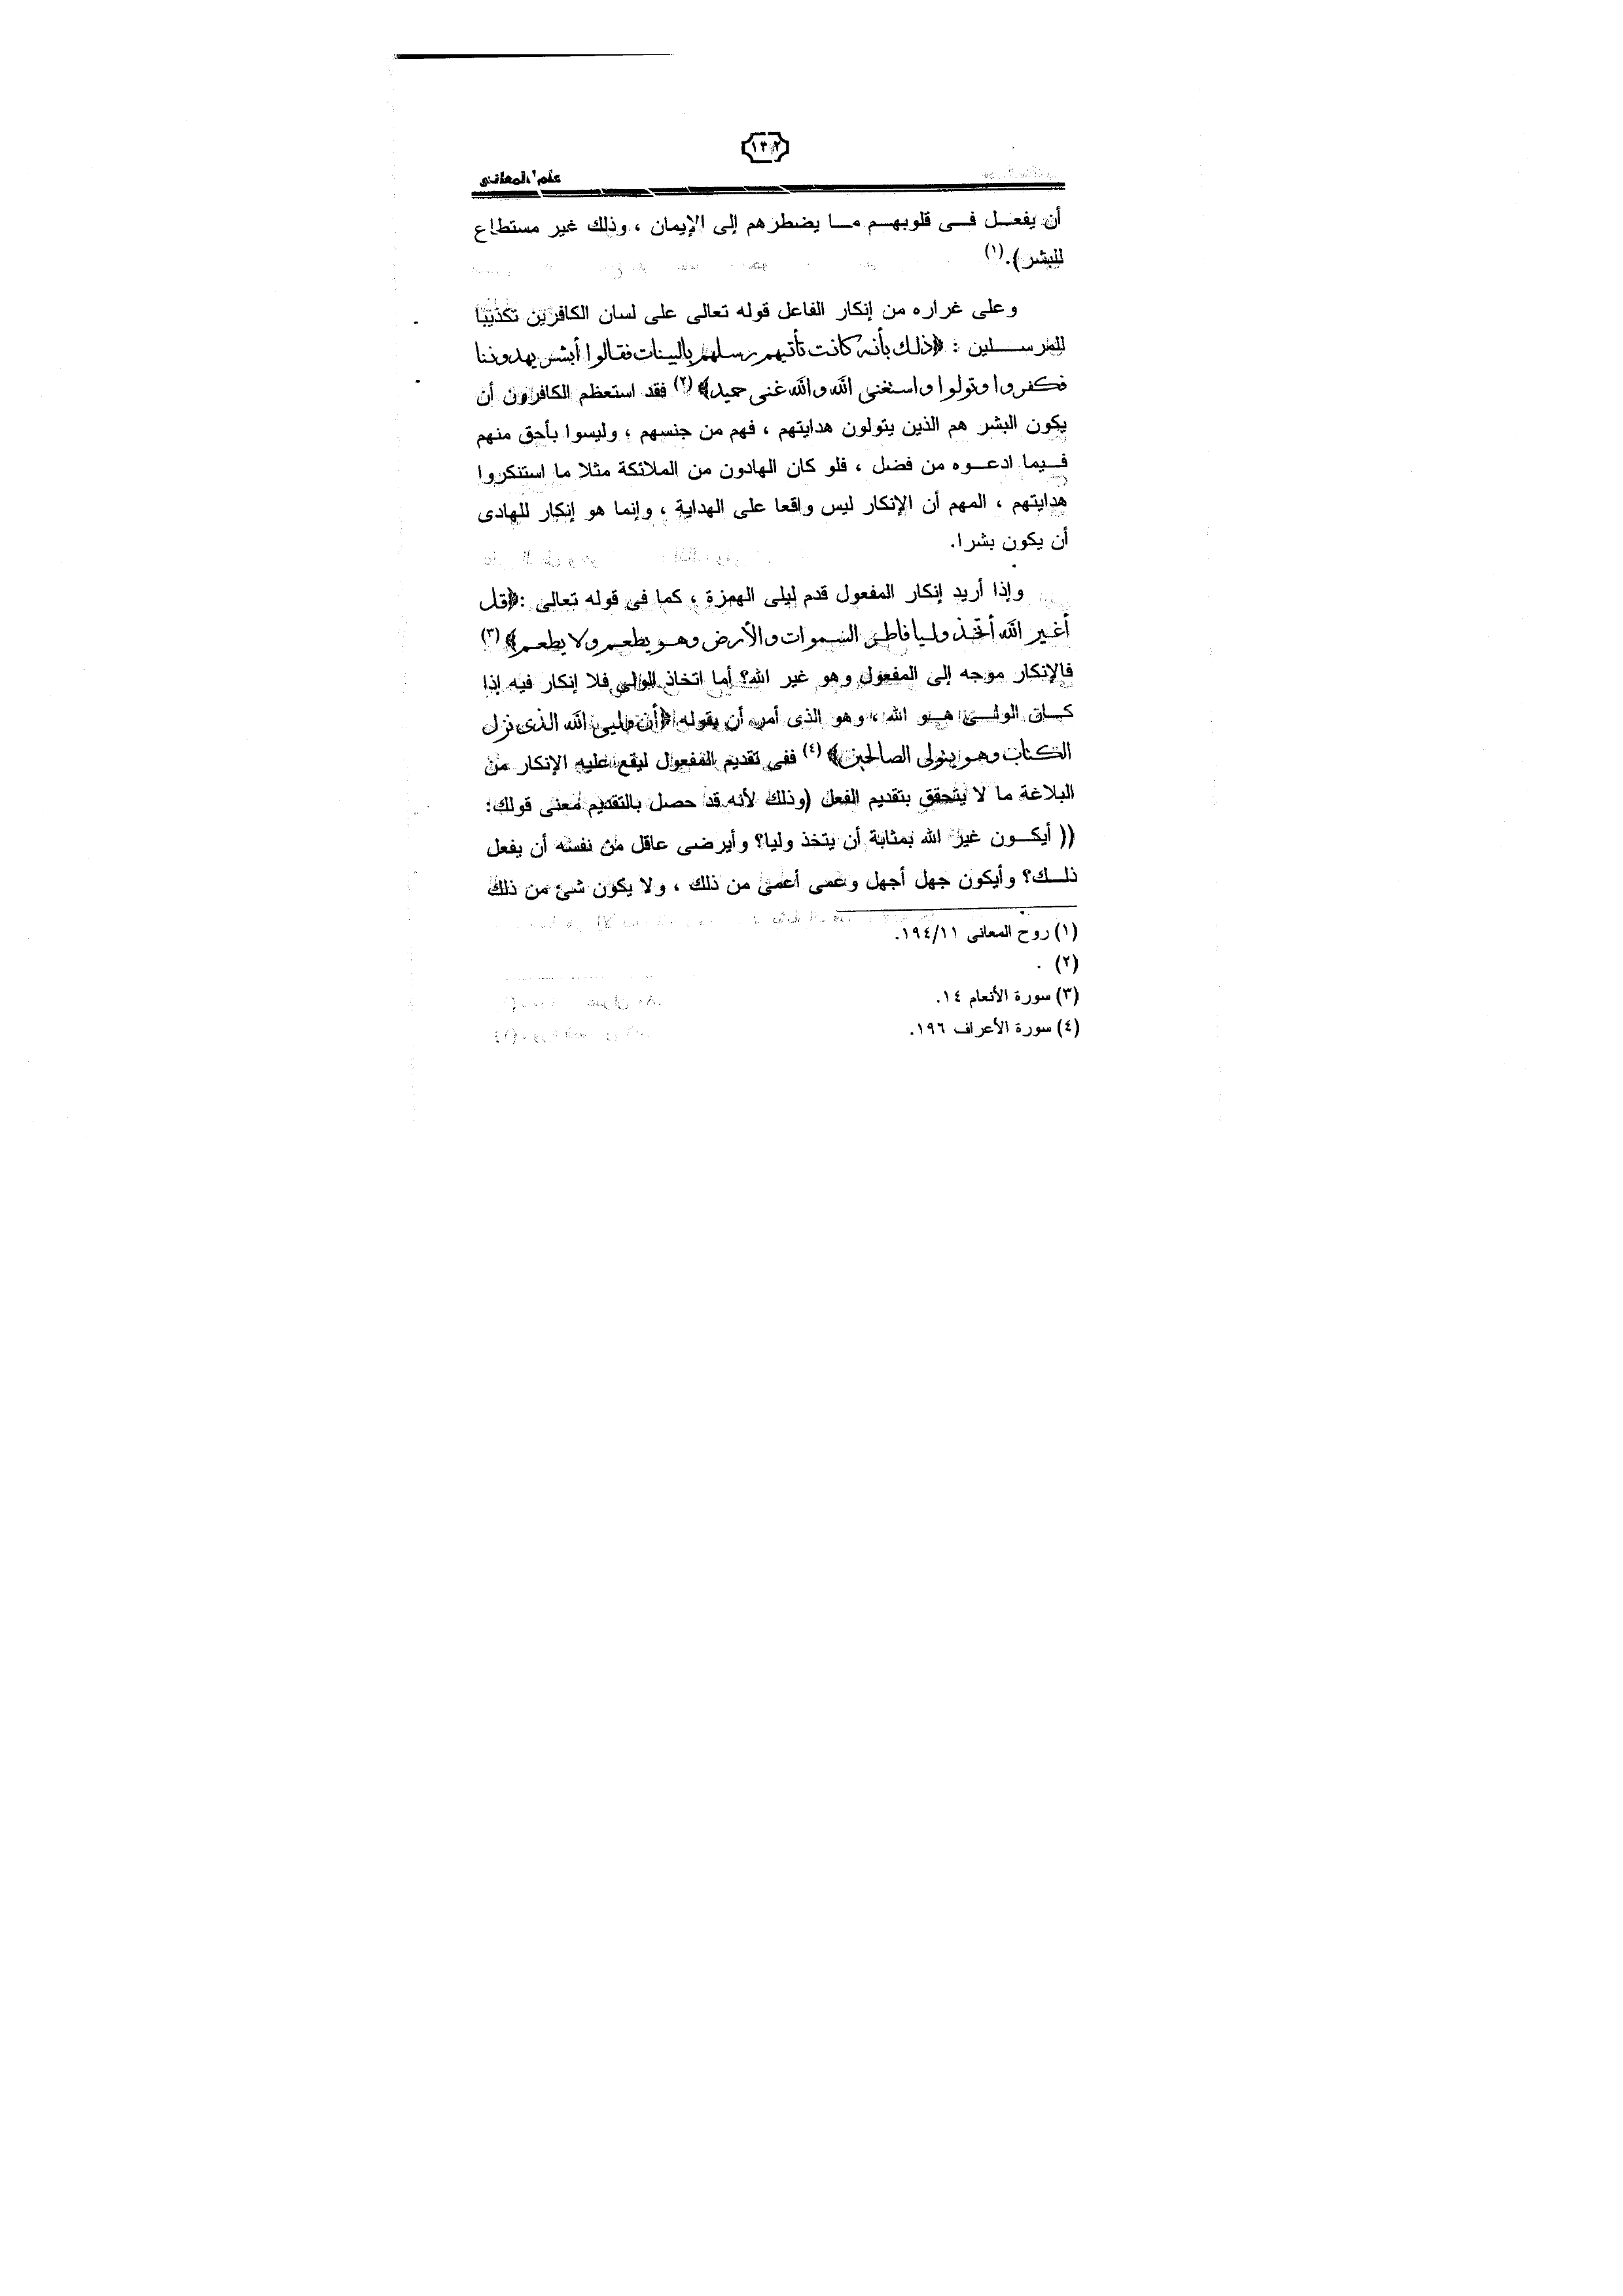 علم المعانى
أن يفعل فى قلوبهم ما يضطرهم إلى الإيمان ، وذلك غير مستطاع
للبشر).(١)
وعلى غراره من إنكار الفاعل قوله تعالى على لسان الكافرين تكذيبا
للمرسلين : ﴿ذلك بأنه كانت تأتيهم رسلهم بالبينات فقالوا أبشر يهدوننا
فكفروا وتولوا واستغنى الله والله غنى حميد﴾(٢) فقد استعظم الكافرون أن
يكون البشر هم الذين يتولون هدايتهم ، فهم من جنسهم ، وليسوا بأحق منهم
فيما ادعوه من فضل ، فلو كان الهادون من الملائكة مثلا ما استنكروا
هدايتهم ، المهم أن الإنكار ليس واقعا على الهداية ، وإنما هو إنكار للهادى
أن يكون بشرا.
وإذا أريد إنكار المفعول قدم ليلى الهمزة ، كما فى قوله تعالى :﴿قل
أغير الله أتخذ وليا فاطر السموات والأرض وهو يطعم ولا يطعم﴾(٣)
فالإنكار موجه إلى المفعول وهو غير الله؟ أما اتخاذ الولى فلا إنكار فيه إذا
كان الولى هو الله ، وهو الذى أمر أن يقوله ﴿إن وليى الله الذى نزل
الكتاب وهو يتولى الصالحين﴾(٤) ففى تقديم المفعول ليقع عليه الإنكار من
البلاغة ما لا يتحقق بتقديم الفعل (وذلك لأنه قد حصل بالتقديم معنى قولك:
(( أيكون غير الله بمثابة أن يتخذ وليا؟ وأيرضى عاقل من نفسه أن يفعل
ذلك؟ وأيكون جهل أجهل وعمى أعمى من ذلك ، ولا يكون شئ من ذلك
(١) روح المعانى ١٩٤/١١.
(٢) .
(٣) سورة الأنعام ١٤.
(٤) سورة الأعراف ١٩٦.